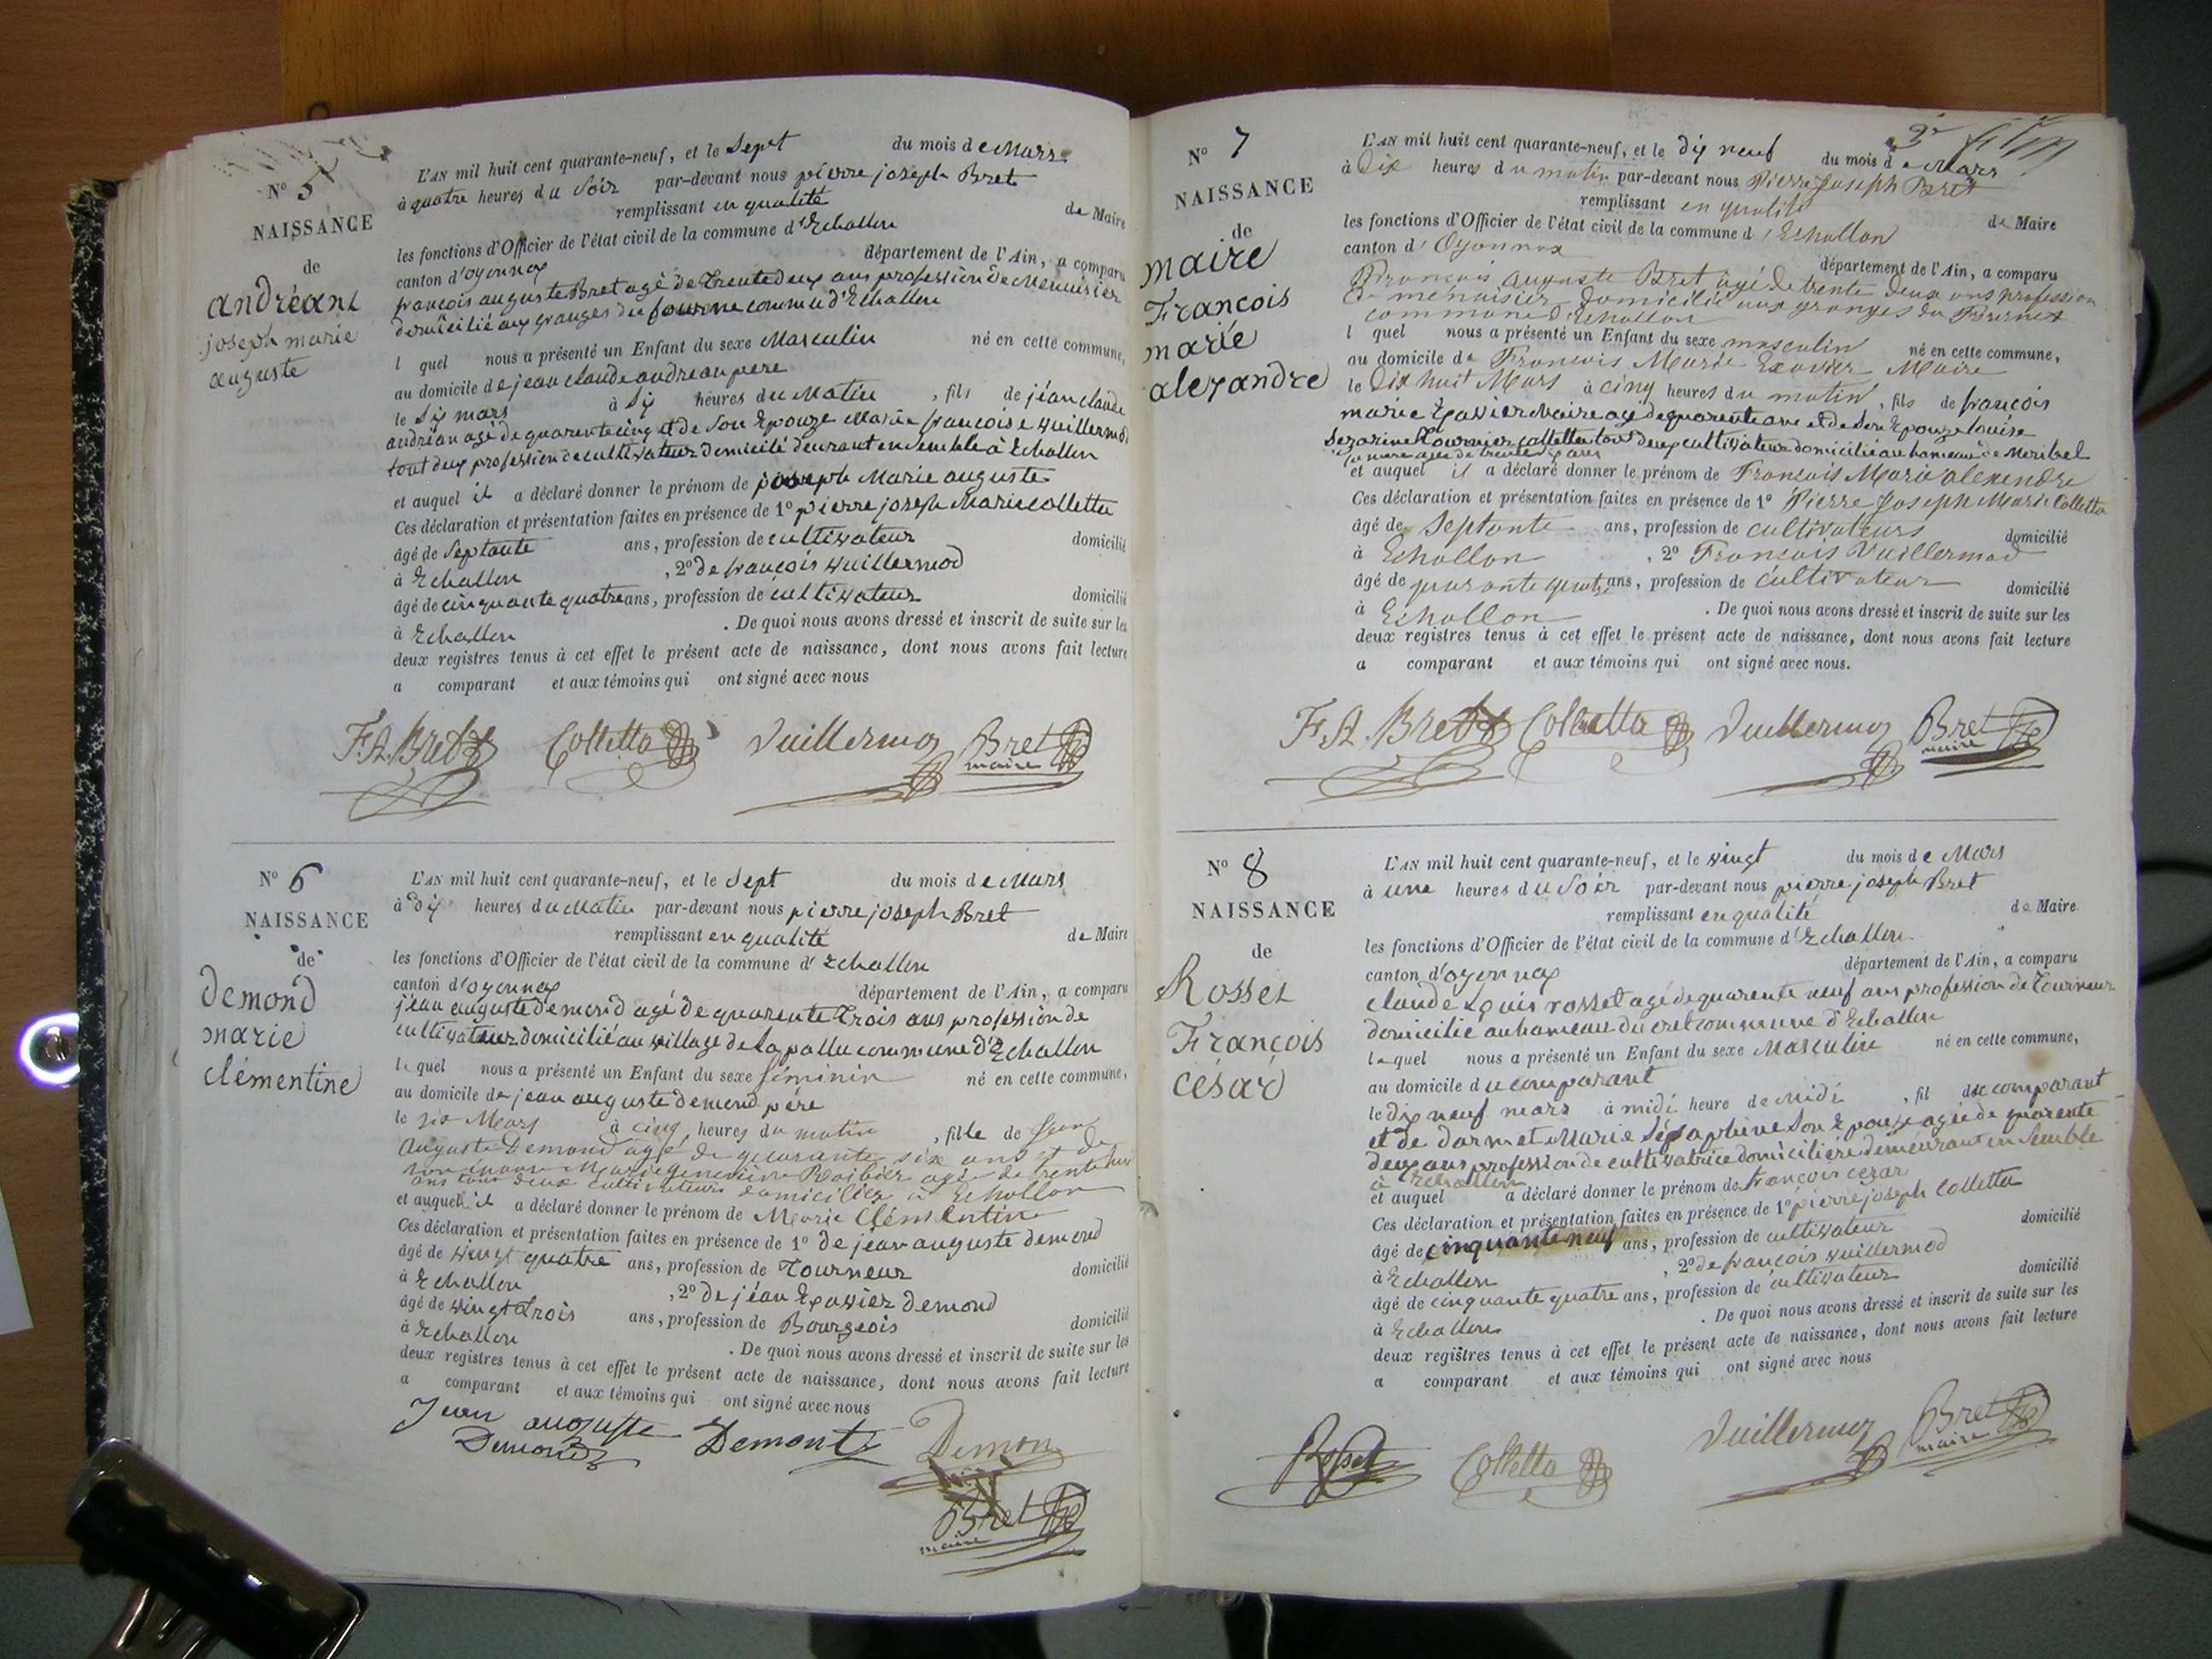 N° 5
NAISSANCE
de
andréant
joseph marie
auguste
L'AN mil huit cent quarante-neuf, et le Sept du mois de Mars
à quatre heures du Soir par-devant nous pierre joseph Bret
remplissant en qualité de Maire
les fonctions d'Officier de l'état civil de la commune d'Echallon
canton d'oyonnax département de l'Ain, a comparu
francois auguste Bret agé de trente deux ans profession de Menuisier
domicilié aux granges du fourne commune d'Echallon
l quel nous a présenté un Enfant du sexe Masculin né en cette commune,
au domicile de jean claude andréan pere
le Six mars à Six heures du Matin, fils de jéan claude
andréan agé de quarente cinq et de Son Epouze Marie francoise Vuillermod
tout deux profession de cultivateur domicilié demeurant ensemble à Echallon
et auquel il a déclaré donner le prénom de joseph Marie auguste
Ces déclaration et présentation faites en présence de 1° pierre joseph Marie Colletta
âgé de Septante ans, profession de cultivateur domicilié
à Echallon, 2° de françois Vuillermod
âgé de cinquante quatre ans, profession de cultivateur domicilié
à Echallon. De quoi nous avons dressé et inscrit de suite sur les
deux registres tenus à cet effet le présent acte de naissance, dont nous avons fait lecture
a comparant et aux témoins qui ont signé avec nous
F. A. Bret Colletta Vuillermoz Bret
maire
N° 6
NAISSANCE
de
Demond
marie
clémentine
L'AN mil huit cent quarante-neuf, et le Sept du mois de Mars
à dix heures du Matin par-devant nous pierre joseph Bret
remplissant en qualité de Maire
les fonctions d'Officier de l'état civil de la commune d'Echallon
canton d'oyonnax département de l'Ain, a comparu
jean auguste demond agé de quarente trois ans profession de
cultivateur domicilié au village de la pallu commune d'Echallon
lequel nous a présenté un Enfant du sexe féminin né en cette commune,
au domicile de jean auguste demond père
le six Mars à cinq heures du matin, fille de Jean
Auguste Demond agé de quarante six ans et de
son épouse Marie genevieve Barbier agé de trente
ans tous deux cultivateurs domiciliés à Echallon
et auquel il a déclaré donner le prénom de Marie Clémentine
Ces déclaration et présentation faites en présence de 1° de jean auguste demond
âgé de vingt quatre ans, profession de Tourneur domicilié
à Echallon, 2° de jéan Exavier demond
âgé de vingt trois ans, profession de Bourgeois domicilié
à Echallon. De quoi nous avons dressé et inscrit de suite sur les
deux registres tenus à cet effet le présent acte de naissance, dont nous avons fait lecture
a comparant et aux témoins qui ont signé avec nous
Jean auguste Demont Demon
Demond
Bret
maire
N° 7
NAISSANCE
de
maire
François
marie
alexandre
L'AN mil huit cent quarante-neuf, et le dix neuf du mois de Mars
à Dix heures du matin par-devant nous Pierre Joseph Bret
remplissant en qualité de Maire
les fonctions d'Officier de l'état civil de la commune d'Echallon
canton d'Oyonnax département de l'Ain, a comparu
François Auguste Bret agé de trente deux ans profession
de menuisier domicilié aux granges du Fournet
commune d'Echallon
l quel nous a présenté un Enfant du sexe masculin né en cette commune,
au domicile de François Marie Exavier Maire
le Dix huit Mars à cinq heures du matin, fils de françois
marie Exavier Maire agé de quarente ans et de Son Epouze louise
Sezarine tournier colletta tout deux cultivateur domicilié au hameau de Meribel
et auquel il a déclaré donner le prénom de François Marie alexendre
Ces déclaration et présentation faites en présence de 1° Pierre Joseph Marie Colletta
âgé de Septante ans, profession de cultivateurs domicilié
à Echallon, 2° François Vuillermod
âgé de quarante quatre ans, profession de cultivateur domicilié
à Echallon. De quoi nous avons dressé et inscrit de suite sur les
deux registres tenus à cet effet le présent acte de naissance, dont nous avons fait lecture
a comparant et aux témoins qui ont signé avec nous.
F. A. Bret Colletta Vuillermoz Bret
maire
N° 8
NAISSANCE
de
Rosset
François
césar
L'AN mil huit cent quarante-neuf, et le vingt du mois de Mars
à une heures du Soir par-devant nous pierre joseph Bret
remplissant en qualité de Maire
les fonctions d'Officier de l'état civil de la commune d'Echallon
canton d'oyonnax département de l'Ain, a comparu
claude Louis rosset agé de quarente neuf ans profession de Tourneur
domicilié au hameau du cret commune d'Echallon
lequel nous a présenté un Enfant du sexe Masculin né en cette commune,
au domicile du comparant
le dix neuf mars à midi heure de Midi, fil du comparant
et de darmet Marie Séraphine Son Epouze agée de quarente
deux ans profession de cultivatrice domiciliére demeurant en Semble
à Echallon
et auquel a déclaré donner le prénom de françois cezar
Ces déclaration et présentation faites en présence de 1° pierre joseph Colletta
âgé de cinquante neuf ans, profession de cultivateur domicilié
à Echallon, 2° de françois Vuillermod
âgé de cinquante quatre ans, profession de cultivateur domicilié
à Echallon. De quoi nous avons dressé et inscrit de suite sur les
deux registres tenus à cet effet le présent acte de naissance, dont nous avons fait lecture
a comparant et aux témoins qui ont signé avec nous
Rosset Colletta Vuillermoz Bret
maire